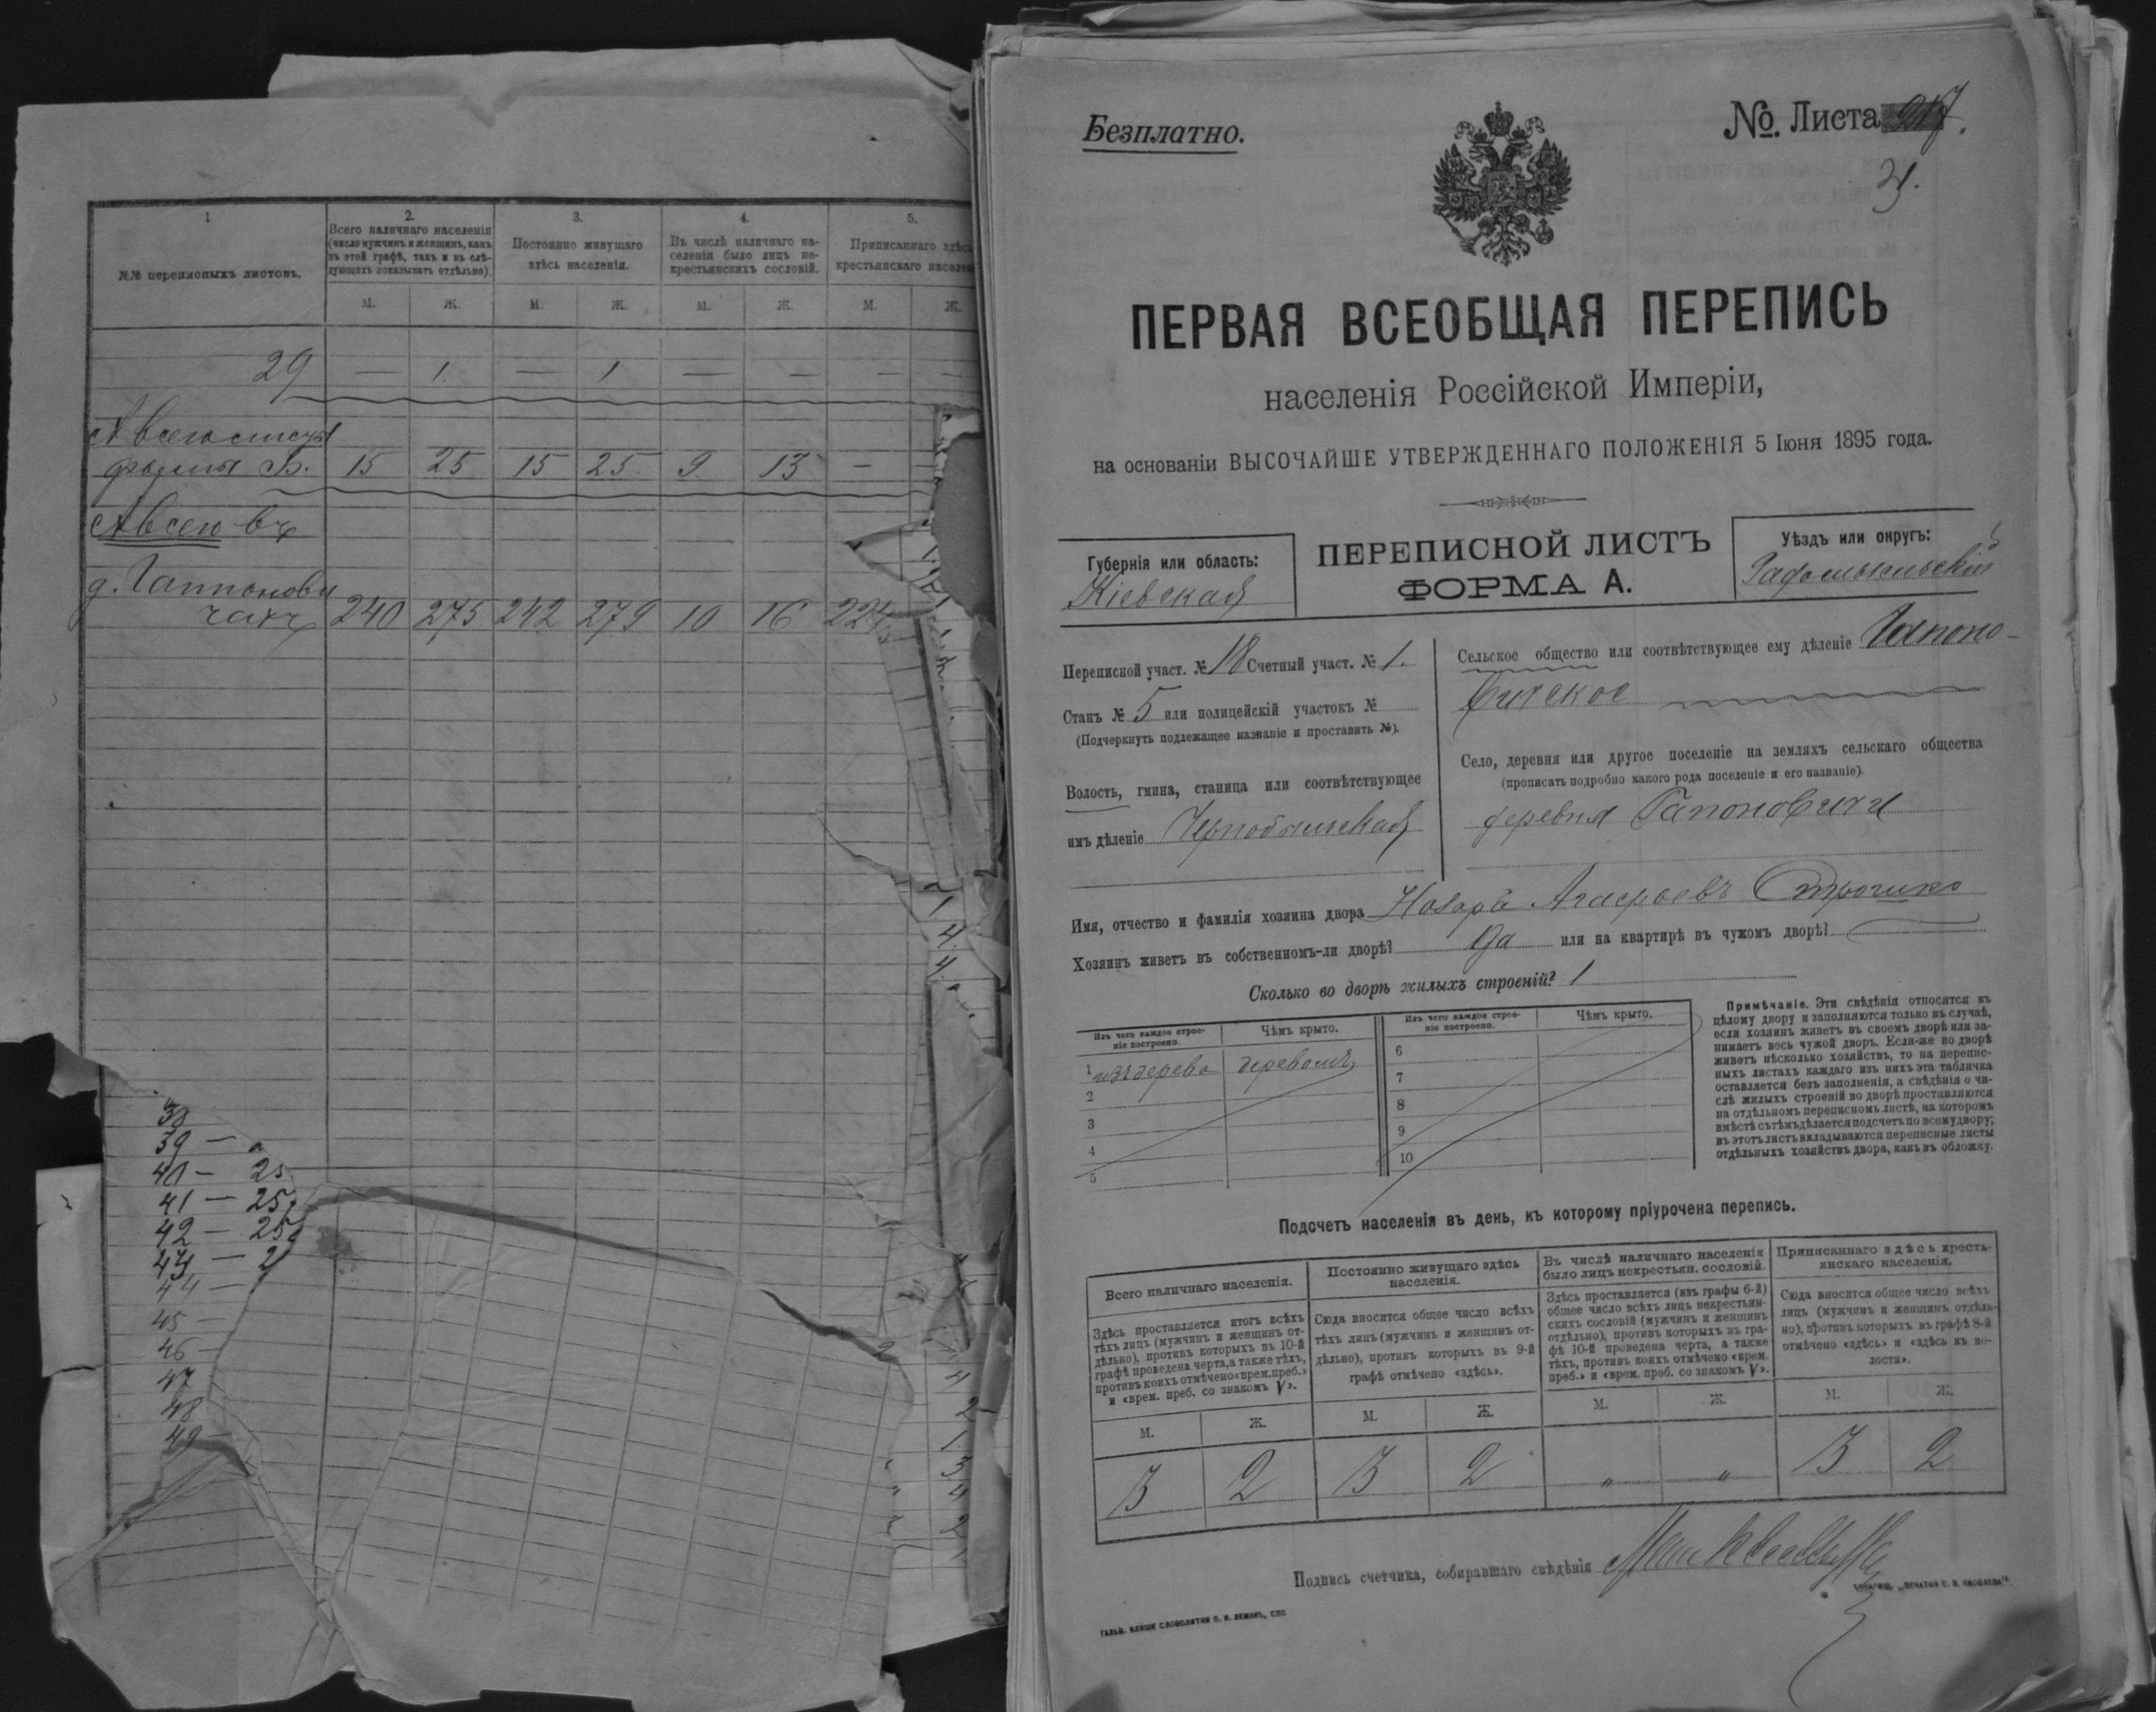 1
2.
3.
4.
5.
№№ переписныхъ листовъ.
Всего наличнаго населенія
(число мужчинъ и женщинъ, какъ
въ этой графѣ, такъ и въ слѣ-
дующихъ показывать отдѣльно).
Постоянно живущаго
здѣсь населенія.
Въ числѣ наличнаго на-
селенія было лицъ не-
крестьянскихъ сословій.
Приписаннаго здѣсь
крестьянскаго населен
М. Ж. М. Ж. М. Ж. М. Ж.
29 — 1. — 1 — — — —
А всего
15 25 15 25 9. 13 —
А всего въ
д. Гаппонови
чахъ 240 275 242 279 10 16 224
38
39 —
40 — 25
41 — 25
42 — 25
43 — 2
44 —
45 —
46 —
47
48
49 —
Безплатно.
№. Листа
31.
ПЕРВАЯ ВСЕОБЩАЯ ПЕРЕПИСЬ
населенія Россійской Имперіи,
на основаніи ВЫСОЧАЙШЕ УТВЕРЖДЕННАГО ПОЛОЖЕНІЯ 5 Іюня 1895 года.
Губернія или область:
Кіевская
ПЕРЕПИСНОЙ ЛИСТЪ
ФОРМА А.
Уѣздъ или округъ:
Радомысльскій
Переписной участ. № 18 Счетный участ. № 1.
Станъ № 5 или полицейскій участокъ №
(Подчеркнуть подлежащее названіе и проставить №).
Волость, гмина, станица или соотвѣтствующее
имъ дѣленіе Чернобыльская
Сельское общество или соотвѣтствующее ему дѣленіе Гапоно-
вичское
Село, деревня или другое поселеніе на земляхъ сельскаго общества
(прописать подробно какого рода поселеніе и его названіе).
деревня Гапоновичи
Имя, отчество и фамилія хозяина двора Назарій Агафоевъ
Хозяинъ живетъ въ собственномъ-ли дворѣ? Да или на квартирѣ въ чужомъ дворѣ?
Сколько во дворѣ жилыхъ строеній? 1
Изъ чего каждое строе-
ніе построено.
Чѣмъ крыто.
Изъ чего каждое строе-
ніе построено.
Чѣмъ крыто.
1 изъ дерева деревомъ
2
3
4
5
6
7
8
9
10
Примѣчаніе. Эти свѣдѣнія относятся къ
цѣлому двору и заполняются только въ случаѣ,
если хозяинъ живетъ въ своемъ дворѣ или за-
нимаетъ весь чужой дворъ. Если-же во дворѣ
живетъ нѣсколько хозяйствъ, то на перепис-
ныхъ листахъ каждаго изъ нихъ эта табличка
оставляется безъ заполненія, а свѣдѣнія о чи-
слѣ жилыхъ строеній во дворѣ проставляются
на отдѣльномъ переписномъ листѣ, на которомъ
вмѣстѣ съ тѣмъ дѣлается подсчетъ по всему двору;
въ этотъ листъ вкладываются переписные листы
отдѣльныхъ хозяйствъ двора, какъ въ обложку.
Подсчетъ населенія въ день, къ которому пріурочена перепись.
Всего наличнаго населенія.
Здѣсь проставляется итогъ всѣхъ
тѣхъ лицъ (мужчинъ и женщинъ от-
дѣльно), противъ которыхъ въ 10-й
графѣ проведена черта, а также тѣхъ,
противъ коихъ отмѣчено «врем. преб.»
и «врем. преб. со знакомъ V».
Постоянно живущаго здѣсь
населенія.
Сюда вносится общее число всѣхъ
тѣхъ лицъ (мужчинъ и женщинъ от-
дѣльно), противъ которыхъ въ 9-й
графѣ отмѣчено «здѣсь».
Въ числѣ наличнаго населенія
было лицъ некрестьян. сословій.
Здѣсь проставляется (изъ графы 6-й)
общее число всѣхъ лицъ некрестьян-
скихъ сословій (мужчинъ и женщинъ
отдѣльно), противъ которыхъ въ гра-
фѣ 10-й проведена черта, а также
тѣхъ, противъ коихъ отмѣчено «врем.
преб.» и «врем. преб. со знакомъ V».
Приписаннаго здѣсь кресть-
янскаго населенія.
Сюда вносится общее число всѣхъ
лицъ (мужчинъ и женщинъ отдѣль-
но), противъ которыхъ въ графѣ 8-й
отмѣчено «здѣсь» и «здѣсь къ во-
лости».
М. Ж. М. Ж. М. Ж. М. Ж.
3 2 3 2 „ „ 3 2
Подпись счетчика, собиравшаго свѣдѣнія
ГАЛЬВ. КЛИШЕ СЛОВОЛИТНИ О. И. ЛЕМАНЪ, СПБ
ТОВАРИЩ. „ПЕЧАТНЯ С. П. ЯКОВЛЕВА“.